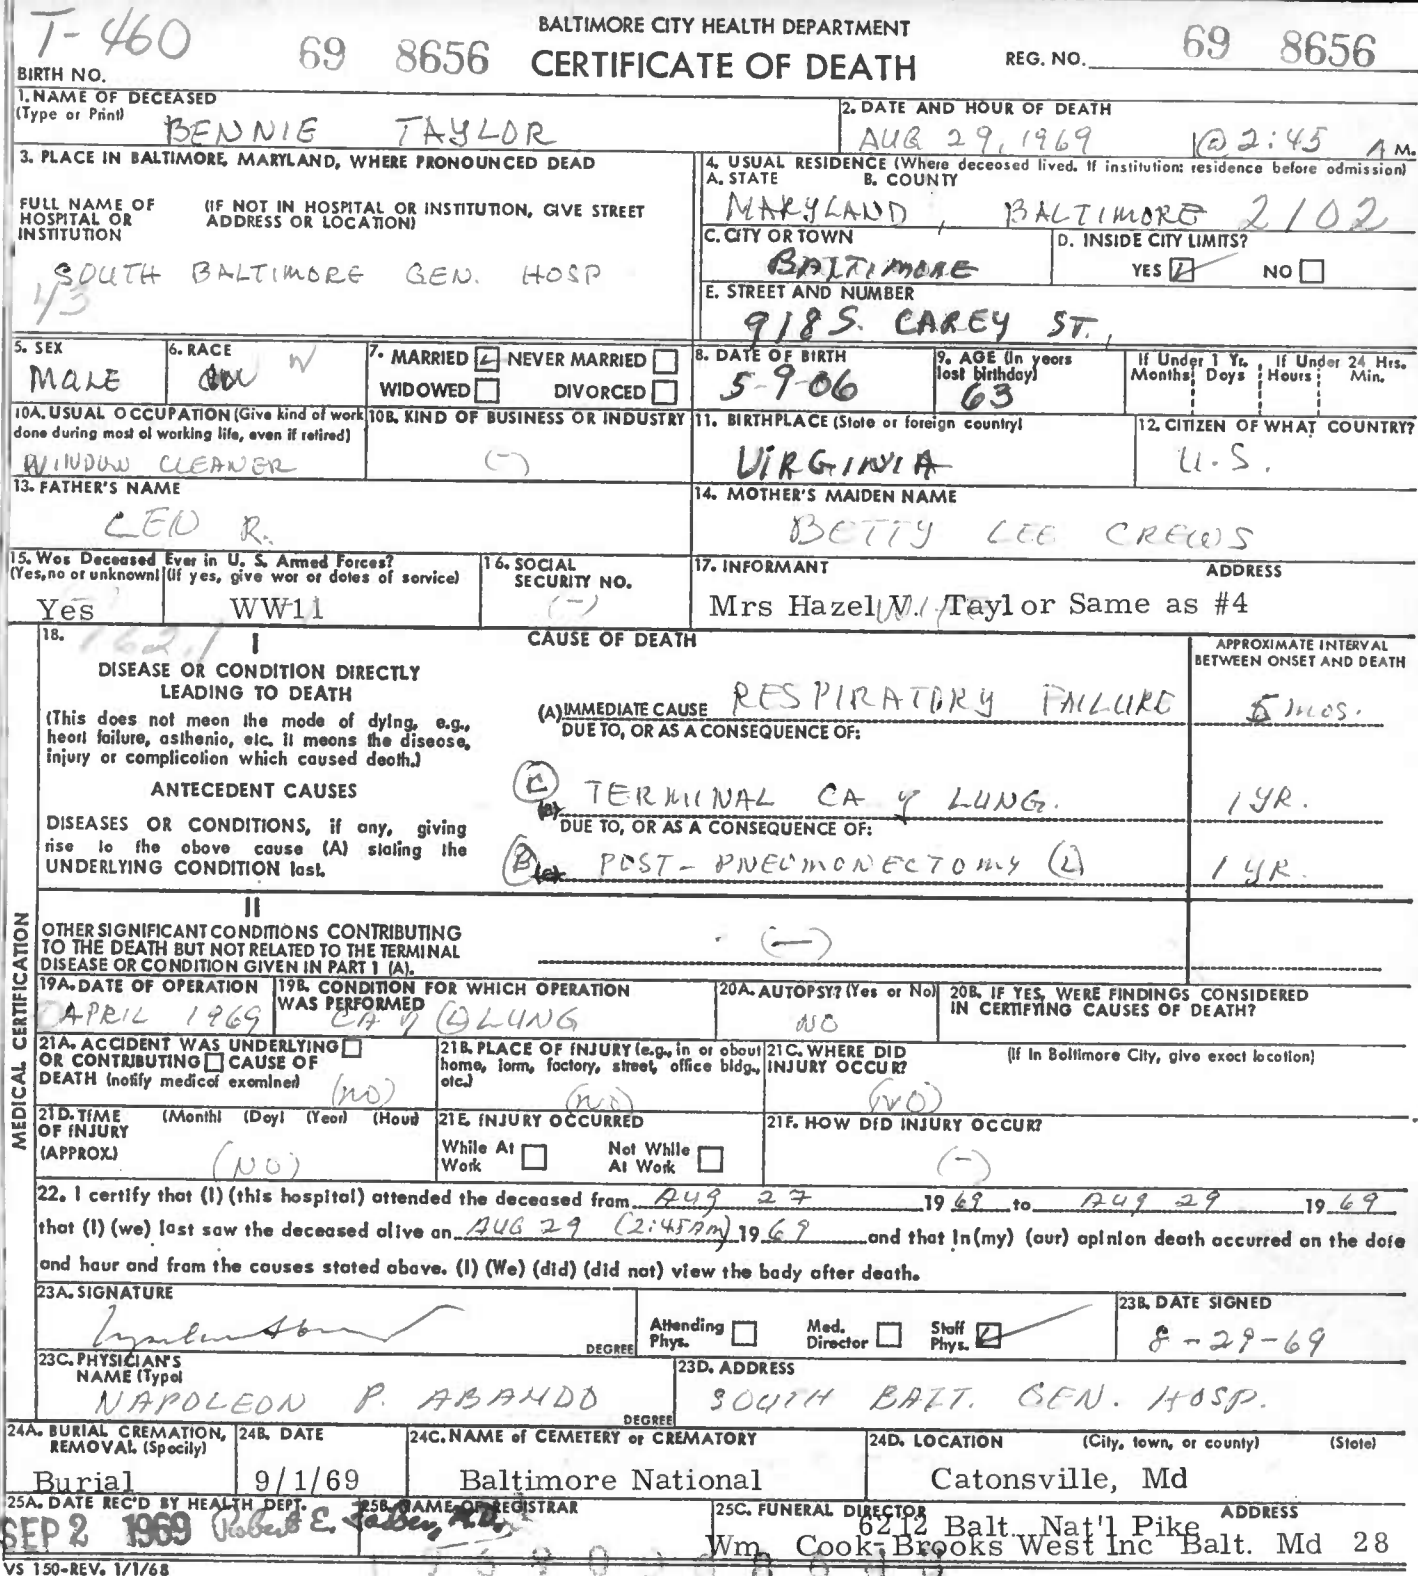 T-460
69 8656
BALTIMORE CITY HEALTH DEPARTMENT
CERTIFICATE OF DEATH
REG. NO. 69 8656
BIRTH NO.
1. NAME OF DECEASED
(Type or Print)
BENNIE TAYLOR
2. DATE AND HOUR OF DEATH
AUG 29, 1969 @ 2:45 A M.
3. PLACE IN BALTIMORE, MARYLAND, WHERE PRONOUNCED DEAD
FULL NAME OF HOSPITAL OR INSTITUTION
(IF NOT IN HOSPITAL OR INSTITUTION, GIVE STREET ADDRESS OR LOCATION)
SOUTH BALTIMORE GEN. HOSP
43
4. USUAL RESIDENCE (Where deceased lived. If institution: residence before admission)
A. STATE B. COUNTY
MARYLAND, BALTIMORE 2102
C. CITY OR TOWN
BALTIMORE
D. INSIDE CITY LIMITS?
YES NO
E. STREET AND NUMBER
918 S. CAREY ST.,
5. SEX
MALE
6. RACE
W
7. MARRIED NEVER MARRIED
WIDOWED DIVORCED
8. DATE OF BIRTH
5-9-06
9. AGE (In years last birthday)
63
If Under 1 Yr. If Under 24 Hrs.
Months Days Hours Min.
10A. USUAL OCCUPATION (Give kind of work done during most of working life, even if retired)
WINDOW CLEANER
10B. KIND OF BUSINESS OR INDUSTRY
(-)
11. BIRTHPLACE (State or foreign country)
VIRGINIA
12. CITIZEN OF WHAT COUNTRY?
U.S.
13. FATHER'S NAME
LEN R.
14. MOTHER'S MAIDEN NAME
BETTY LEE CREWS
15. Was Deceased Ever in U. S. Armed Forces?
(Yes, no or unknown) (If yes, give war or dates of service)
Yes WW11
16. SOCIAL SECURITY NO.
(-)
17. INFORMANT ADDRESS
Mrs Hazel V. Taylor Same as #4
18. 162.1
I
DISEASE OR CONDITION DIRECTLY
LEADING TO DEATH
(This does not mean the mode of dying, e.g.,
heart failure, asthenia, etc. It means the disease,
injury or complication which caused death.)
ANTECEDENT CAUSES
DISEASES OR CONDITIONS, if any, giving
rise to the above cause (A) stating the
UNDERLYING CONDITION last.
CAUSE OF DEATH
APPROXIMATE INTERVAL
BETWEEN ONSET AND DEATH
(A) IMMEDIATE CAUSE RESPIRATORY FAILURE 5 mos.
DUE TO, OR AS A CONSEQUENCE OF:
C (B) TERMINAL CA of LUNG. 1 YR.
DUE TO, OR AS A CONSEQUENCE OF:
B (C) POST-PNEUMONECTOMY (L) 1 YR.
II
OTHER SIGNIFICANT CONDITIONS CONTRIBUTING
TO THE DEATH BUT NOT RELATED TO THE TERMINAL
DISEASE OR CONDITION GIVEN IN PART 1 (A).
(-)
MEDICAL CERTIFICATION
19A. DATE OF OPERATION
APRIL 1969
19B. CONDITION FOR WHICH OPERATION WAS PERFORMED
CA of (L) LUNG
20A. AUTOPSY? (Yes or No)
NO
20B. IF YES, WERE FINDINGS CONSIDERED IN CERTIFYING CAUSES OF DEATH?
21A. ACCIDENT WAS UNDERLYING
OR CONTRIBUTING CAUSE OF
DEATH (notify medical examiner)
(no)
21B. PLACE OF INJURY (e.g., in or about home, farm, factory, street, office bldg., etc.)
(no)
21C. WHERE DID INJURY OCCUR?
(If in Baltimore City, give exact location)
(NO)
21D. TIME OF INJURY (APPROX.)
(Month) (Day) (Year) (Hour)
(NO)
21E. INJURY OCCURRED
While At Work Not While At Work
21F. HOW DID INJURY OCCUR?
(-)
22. I certify that (I) (this hospital) attended the deceased from AUG 27 1969 to AUG 29 1969
that (I) (we) last saw the deceased alive on AUG 29 (2:45AM) 1969 and that in (my) (our) opinion death occurred on the date
and hour and from the causes stated above. (I) (We) (did) (did not) view the body after death.
23A. SIGNATURE
DEGREE
Attending Phys. Med. Director Staff Phys.
23B. DATE SIGNED
8-29-69
23C. PHYSICIAN'S NAME (Type)
NAPOLEON P. ABANDO
DEGREE
23D. ADDRESS
SOUTH BALT. GEN. HOSP.
24A. BURIAL CREMATION, REMOVAL (Specify)
Burial
24B. DATE
9/1/69
24C. NAME of CEMETERY or CREMATORY
Baltimore National
24D. LOCATION (City, town, or county) (State)
Catonsville, Md
25A. DATE REC'D BY HEALTH DEPT.
SEP 2 1969
25B. NAME OF REGISTRAR
Robert E. Farber, M.D.
25C. FUNERAL DIRECTOR ADDRESS
6212 Balt. Nat'l Pike
Wm Cook-Brooks West Inc Balt. Md 28
VS 150-REV. 1/1/68